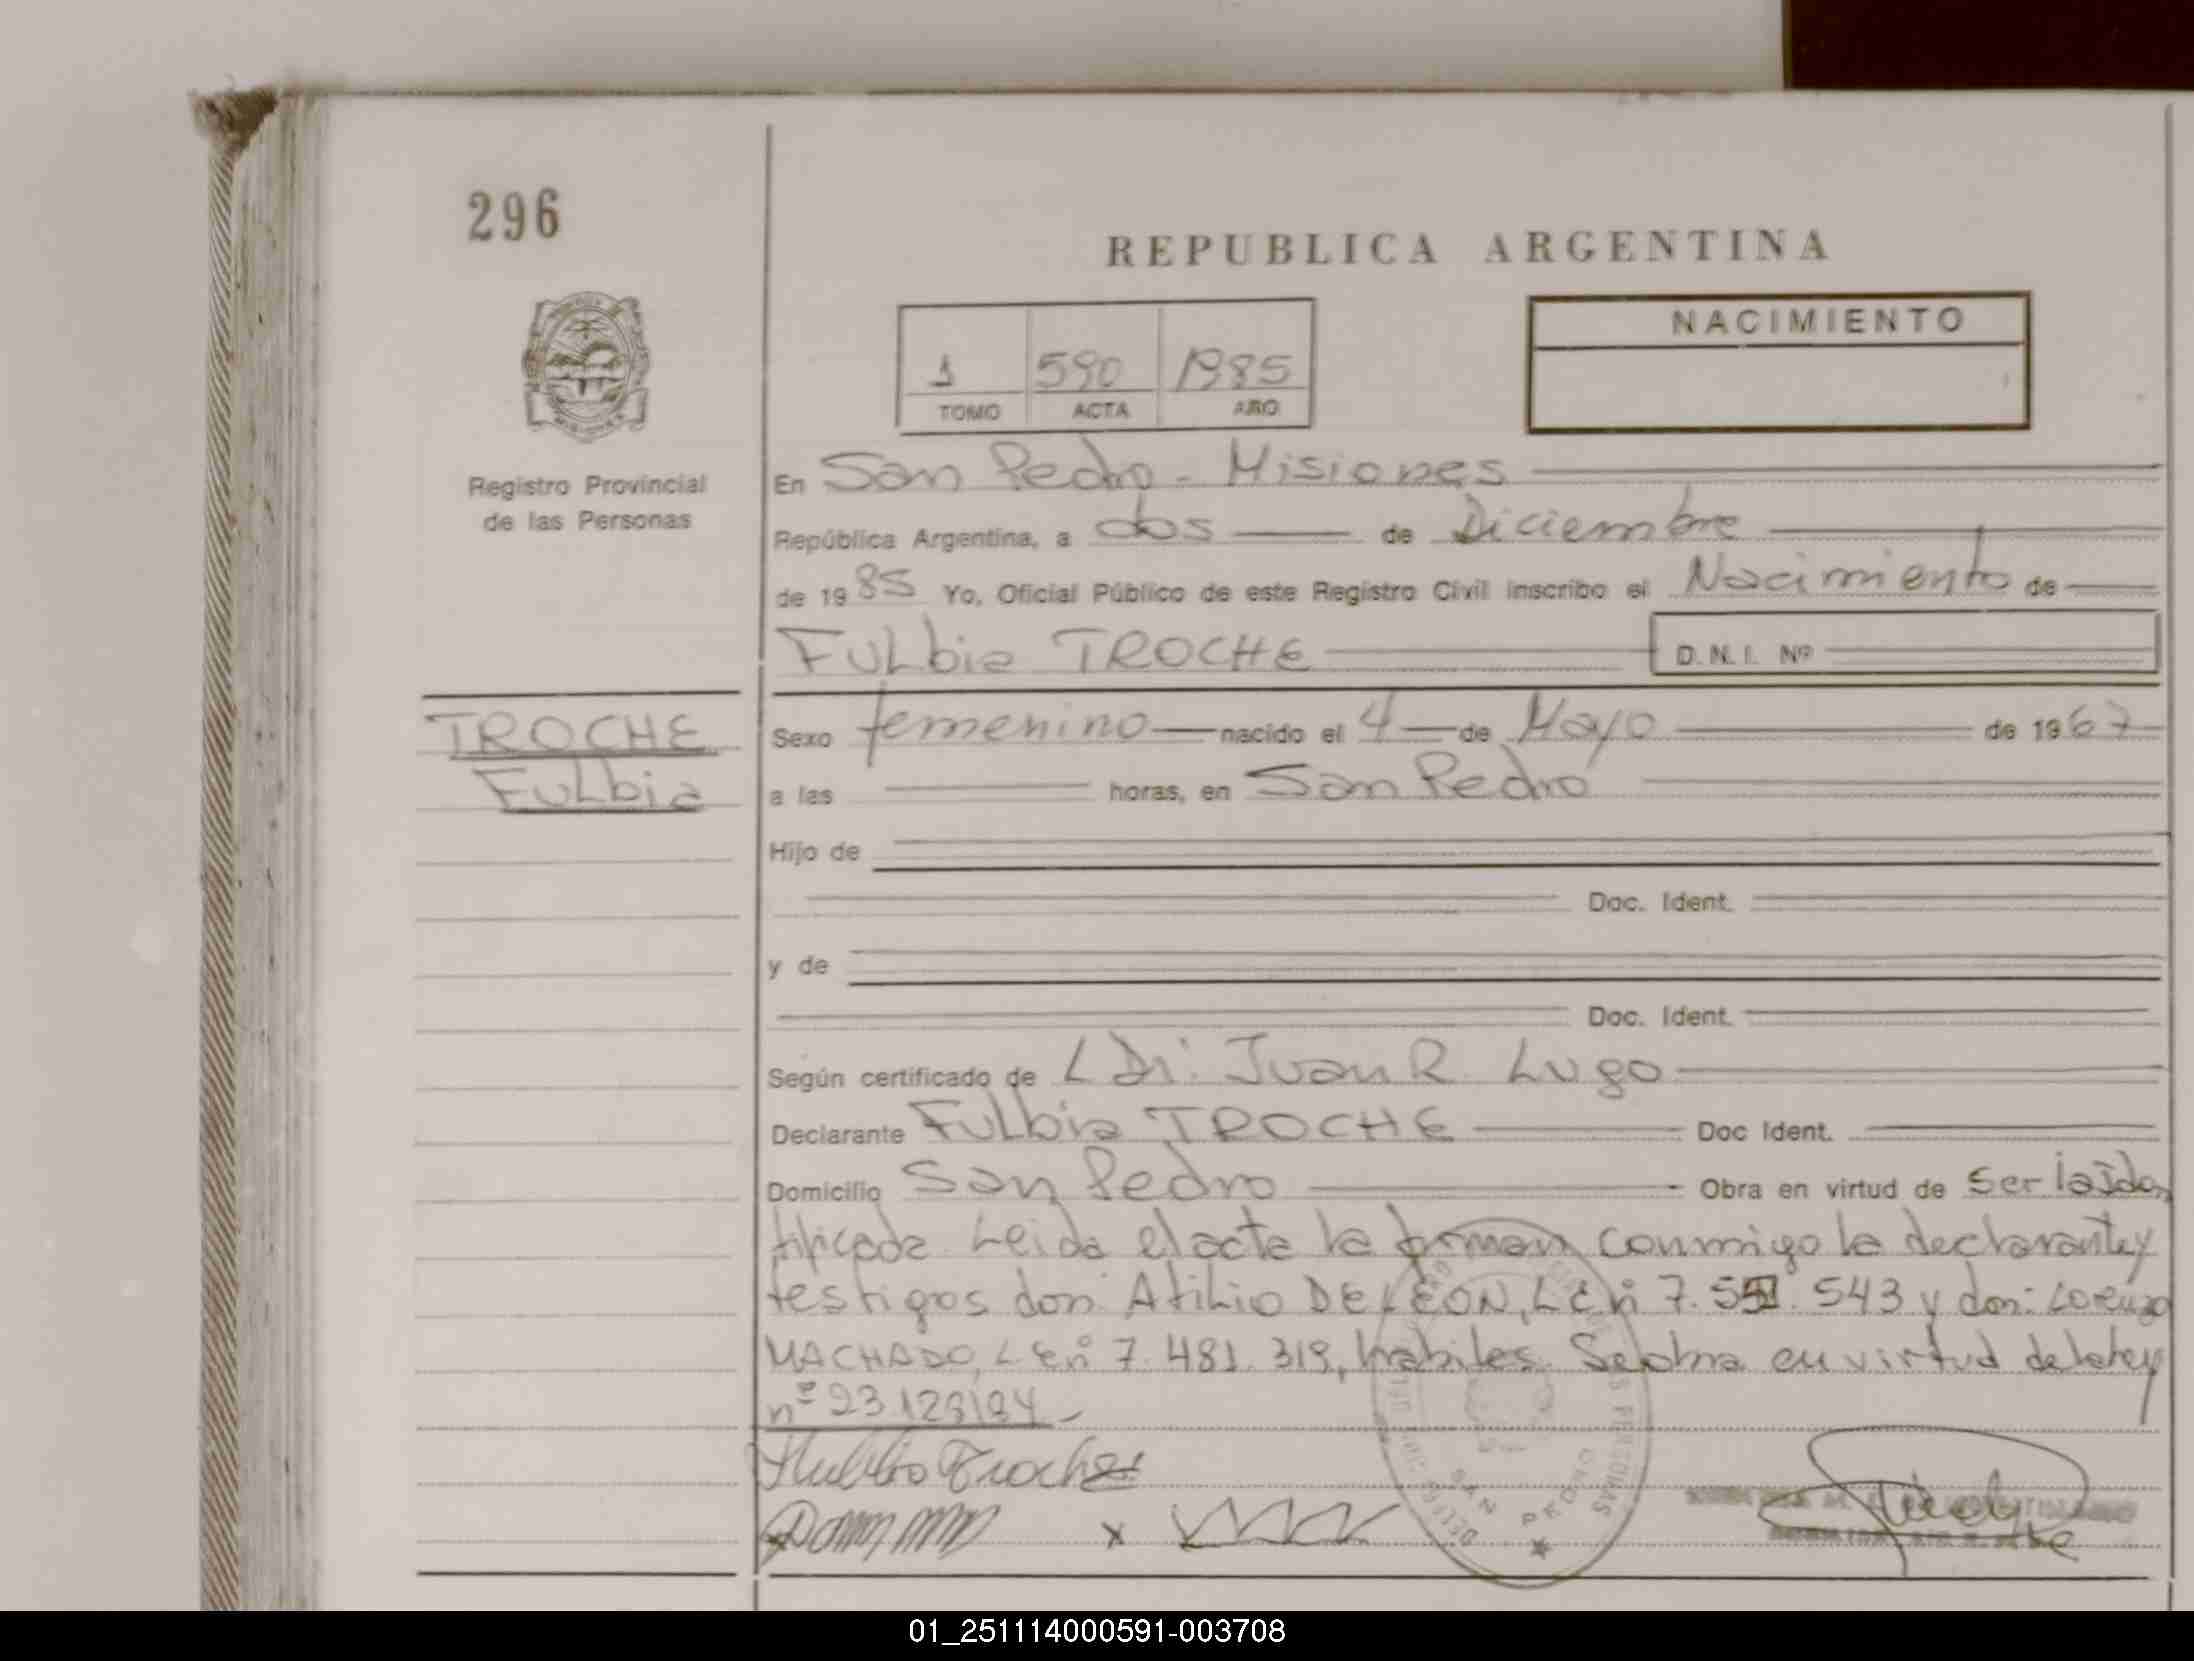 296
REPUBLICA ARGENTINA
NACIMIENTO
1 590 1985
TOMO ACTA AÑO
Registro Provincial
de las Personas
En San Pedro - Misiones
República Argentina, a dos de Diciembre
de 1985 Yo, Oficial Público de este Registro Civil inscribo el Nacimiento de
Fulbia TROCHE D.N.I. Nº
TROCHE
Fulbia
Sexo femenino nacido el 4 de Mayo de 1967
a las horas, en San Pedro
Hijo de
Doc. Ident.
y de
Doc. Ident.
Según certificado de Juan R. Lugo
Declarante Fulbia TROCHE Doc Ident.
Domicilio San Pedro Obra en virtud de ser la Iden
tificada Leida el acta la firman conmigo la declarante y
testigos don Atilio DE LEON, L E nº 543 y don: Lorenzo
MACHADO, L. E nº 7.481.319, habiles. Se obra en virtud de la ley
nº 23128/84
Troche
SAN PEDRO
01_251114000591-003708